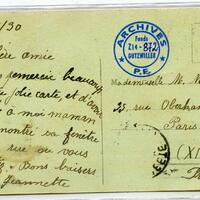 /30
ère amie
remercie beaucoup
jolie carte, et d'avoir
à moi maman
montré sa fenêtre
sur ou vous
Bons baisers
Jeannette
ARCHIVES
Fonds
Z14-872
GUTZWILLER
P.E.
Mademoiselle
rue Oberkam
Paris
(XI